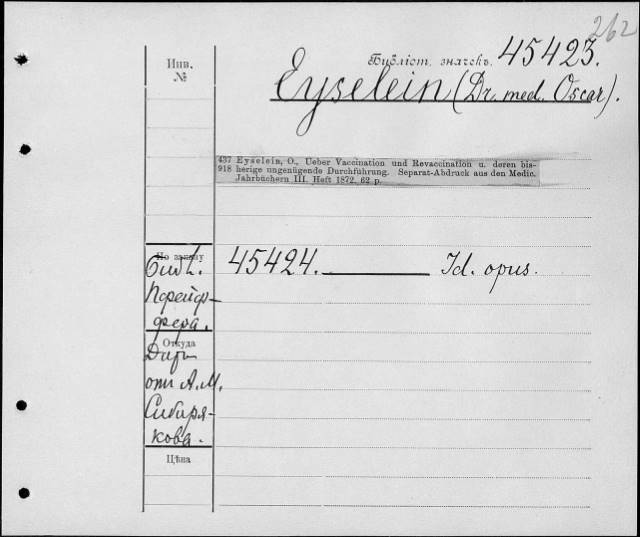 262
Инв.
№
Библіот. значекъ. 45423.
Eyselein (Dr. med. Oscar).
437 Eyselein, O., Ueber Vaccination und Revaccination u. deren bis-
918 herige ungenügende Durchführung. Separat-Abdruck aus den Medic.
Jahrbüchern III. Heft 1872. 62 p.
По заказу
Библ.
45424. Id. opus.
Пфейф-
фера.
Откуда
Даръ
отъ А. М.
Сибиря-
кова.
Цѣна